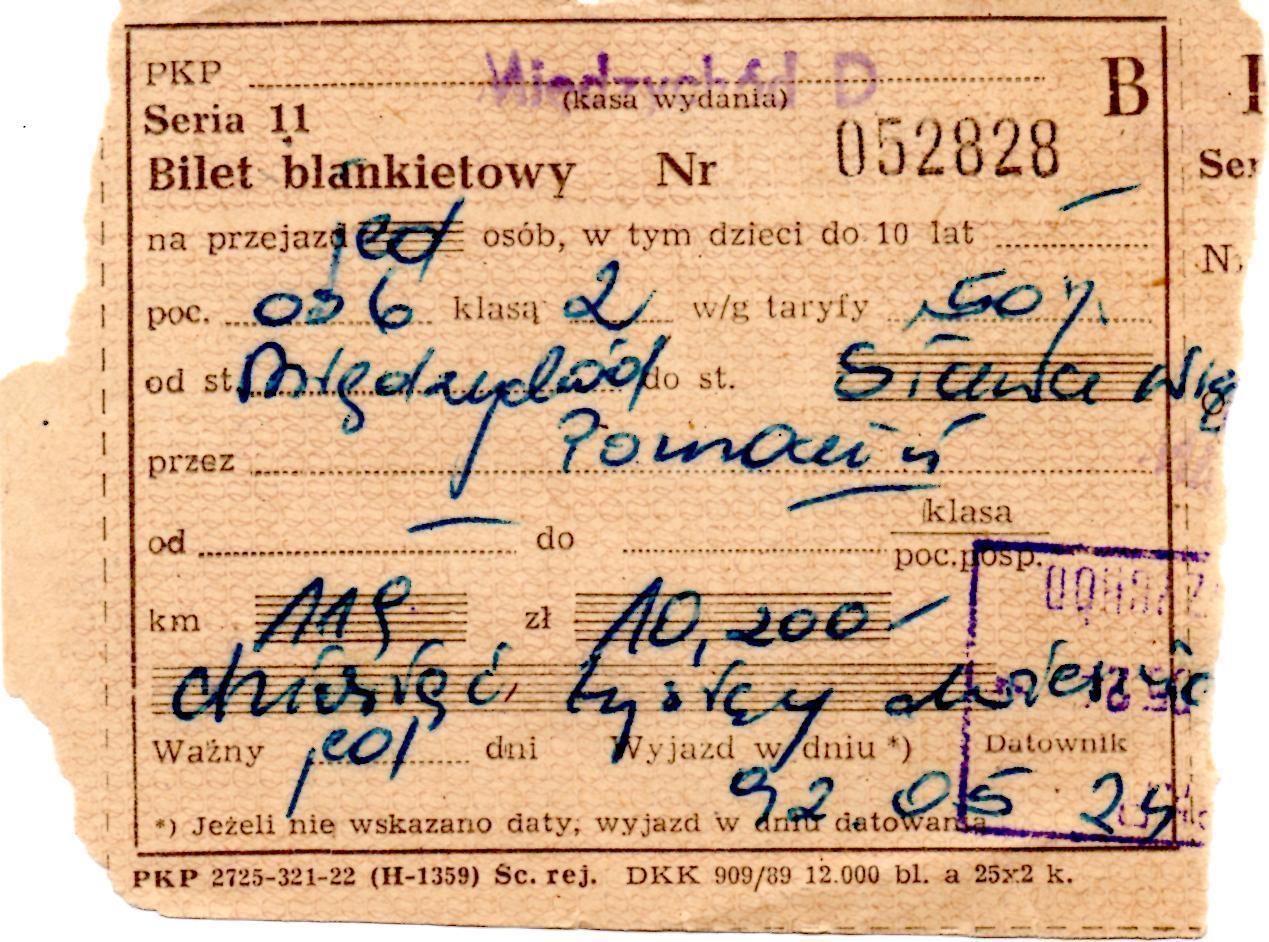 PKP Międzychód D B
(kasa wydania)
Seria 11
Bilet blankietowy Nr 052828
na przejazd jed osób, w tym dzieci do 10 lat —
poc. osb klasą 2 w/g taryfy 50%
od st. Międzychód do st.
przez Poznań
od — do — klasa
poc.posp.
km 119 zł 10,200-
dziesięć tysięcy dwieście
Ważny jed dni Wyjazd w dniu *) Datownik
92 05 24
*) Jeżeli nie wskazano daty, wyjazd w dniu datowania
PKP 2725-321-22 (H-1359) Śc. rej. DKK 909/89 12.000 bl. a 25x2 k.